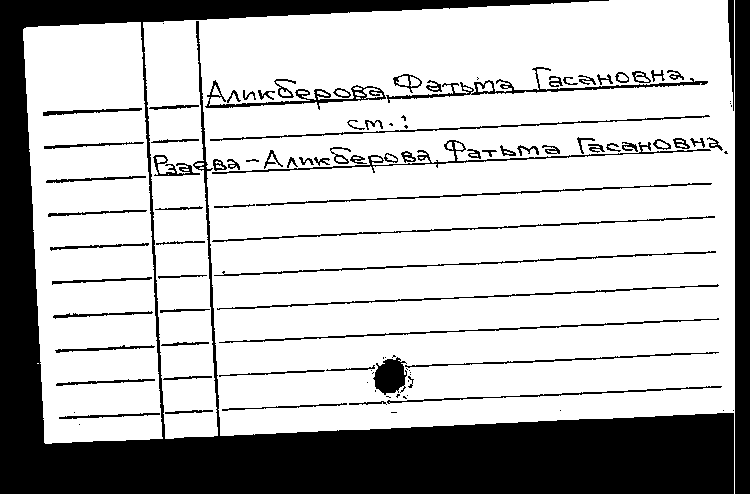 Аликберова, Фатьма Гасановна.
см.:
Рзаева-Аликберова, Фатьма Гасановна.